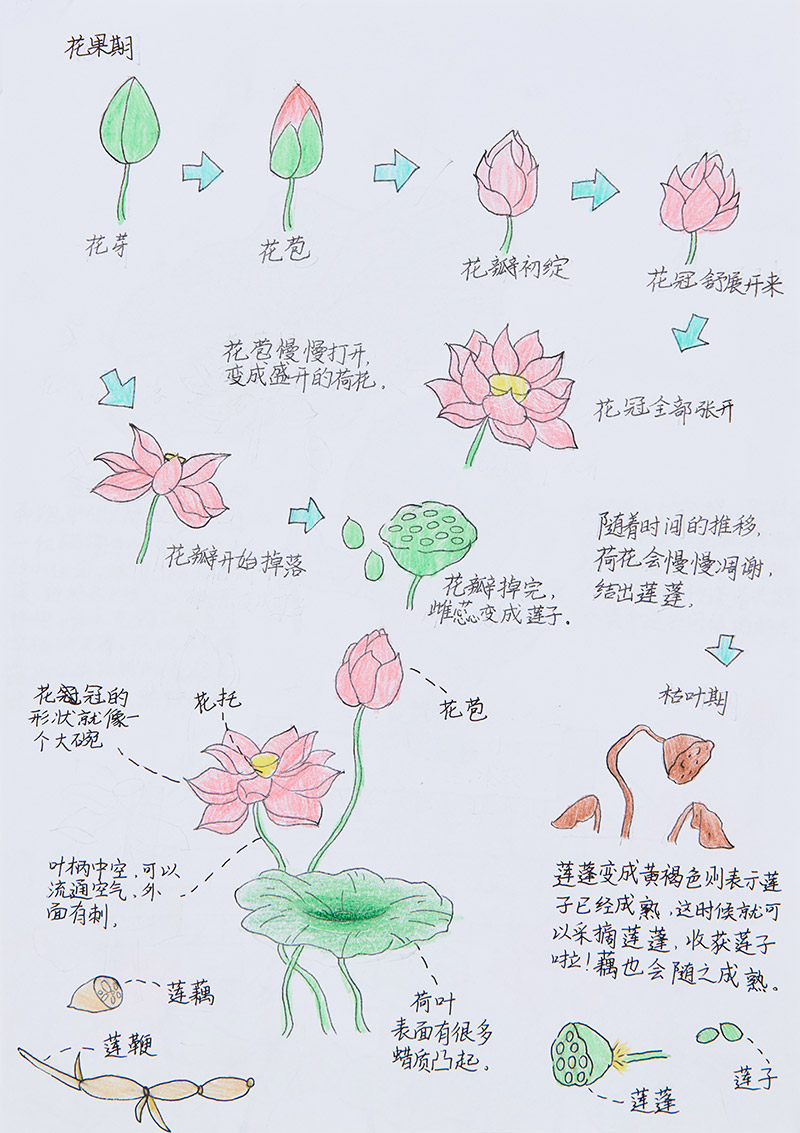 花果期
花芽
花苞
花瓣初绽
花冠舒展开来
花苞慢慢打开，
变成盛开的荷花。
花冠全部张开
花瓣开始掉落
花瓣掉完，
雌蕊变成莲子。
随着时间的推移，
荷花会慢慢凋谢，
结出莲蓬。
枯叶期
花冠的
形状就像一
个大碗
花托
花苞
叶柄中空，可以
流通空气，外
面有刺。
莲蓬变成黄褐色则表示莲
子已经成熟，这时候就可
以采摘莲蓬，收获莲子
啦！藕也会随之成熟。
莲藕
莲鞭
荷叶
表面有很多
蜡质凸起。
莲蓬
莲子